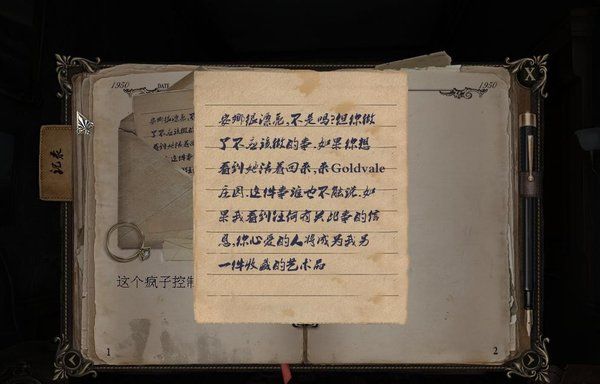 1950
DATE
1950
X
记录
安娜很漂亮,不是吗?但你做
了不应该做的事.如果你想
看到她活着回来,来Goldvale
庄园.这件事谁也不能说.如
果我看到任何有关此事的信
息,你心爱的人将成为我另
一件收藏的艺术品
这个疯子控制
1
2